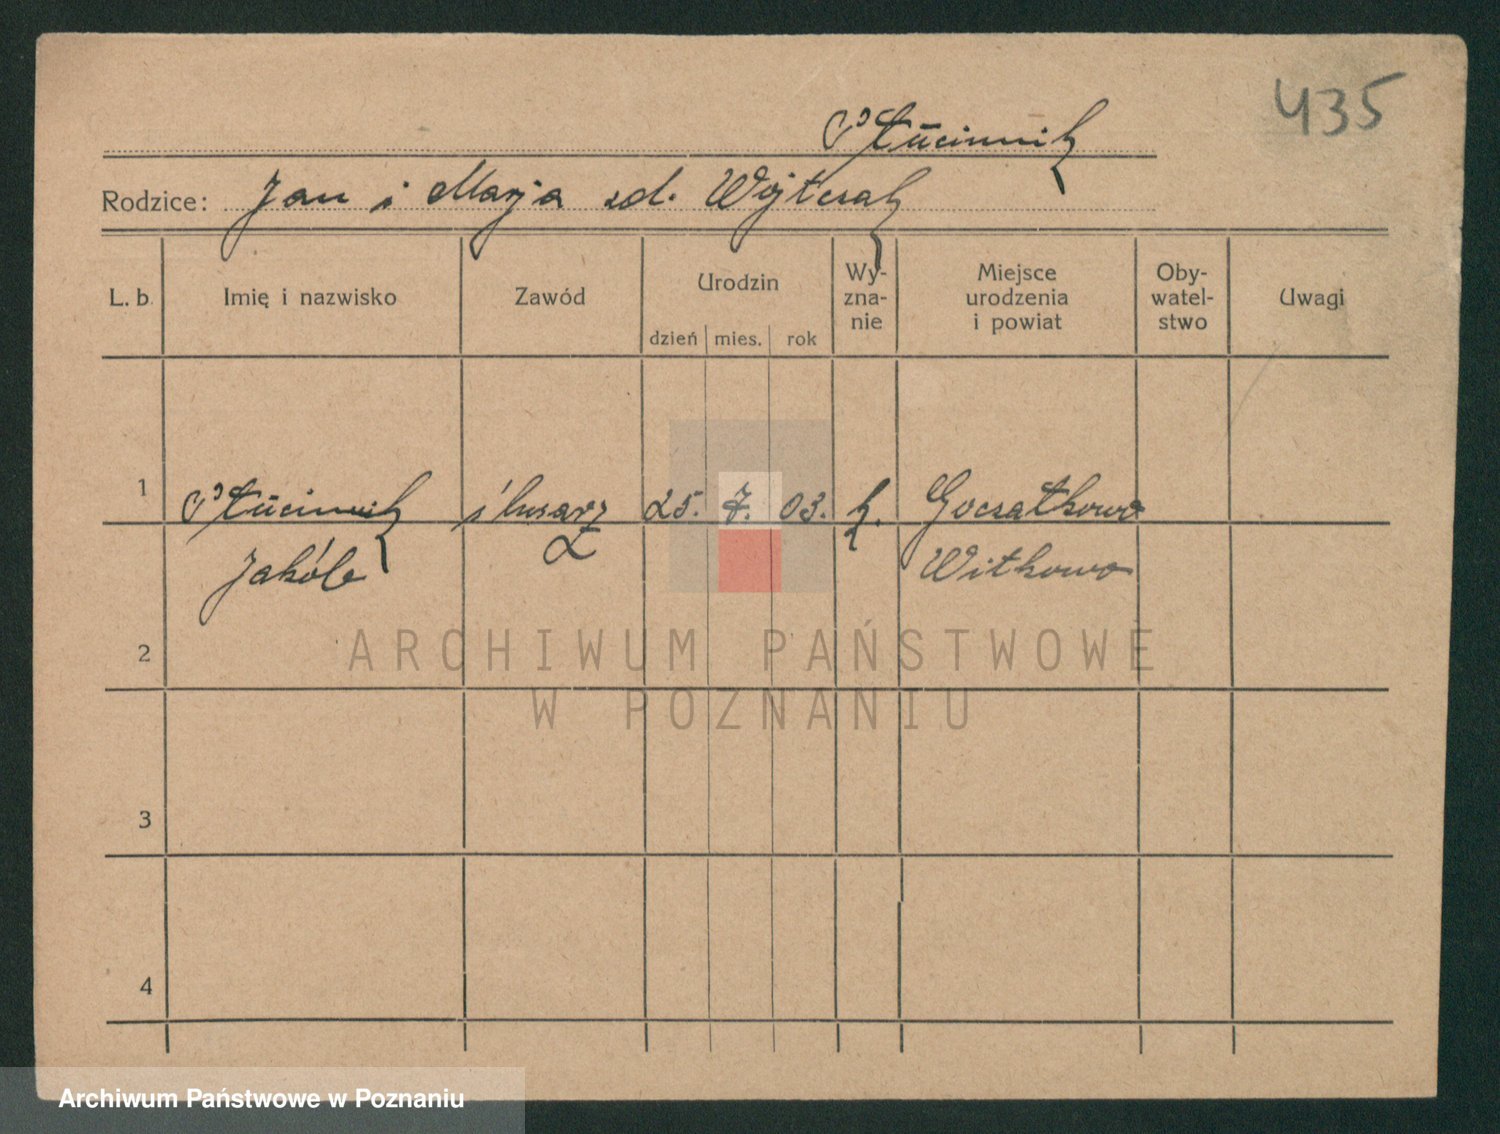 435
Płucinnik
Rodzice: Jan i Marja zd. Wojtczak
L. b. Imię i nazwisko Zawód Urodzin dzień mies. rok Wy-zna-nie Miejsce urodzenia i powiat Oby-watel-stwo Uwagi
1 Płucinnik ślusarz 25. 7. 03. k. Goczałkowo
Jakób Witkowo
2
3
4
ARCHIWUM PAŃSTWOWE
W POZNANIU
Archiwum Państwowe w Poznaniu